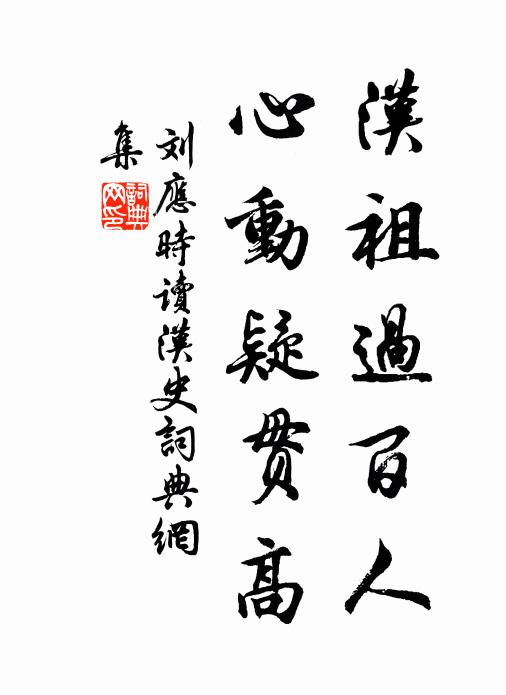 漢祖過百人
心動疑貫高
刘應時讀漢史詞典網
集
詞典網印